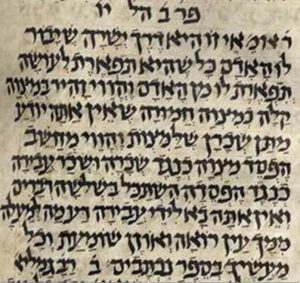 פרב הל יו
ר אומ אי זו היא דרך ישרה שיבור
לו האדם כל שהיא תפארת לעושה
תפארת לו מן האדם והווי זהיר במצווה
קלה כמצווה חמורה שאין אתה יודע
מתן שכרן שלמצוות והווי מחשב
הפסד מצוה כנגד שכרה ושכר עבירה
כנגד הפסדה הסתכל בשלשה דברים
ואין אתה בא לידי עבירה דע מה למעלה
ממך עין רואה ואוזן שומעת וכל
מעשיך בספר נכתבים ב רבן גמליא